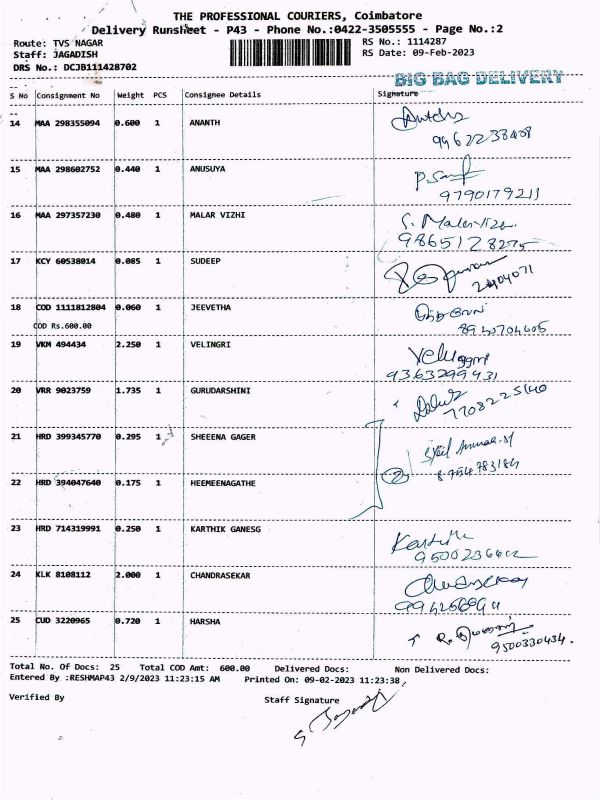 THE PROFESSIONAL COURIERS, Coimbatore
Delivery Runsheet - P43 - Phone No.:0422-3505555 - Page No.:2
Route: TVS NAGAR RS No.: 1114287
Staff: JAGADISH RS Date: 09-Feb-2023
DRS No.: DCJB111428702
BIG BAG DELIVERY
S No Consignment No Weight PCS Consignee Details Signature
14 MAA 298355094 0.600 1 ANANTH
9962238408
15 MAA 298602752 0.440 1 ANUSUYA
9790179211
16 MAA 297357230 0.480 1 MALAR VIZHI S. Malarvizhi
9865128275
17 KCY 60538014 0.085 1 SUDEEP
18 COD 1111812804 0.060 1 JEEVETHA
COD Rs.600.00 8940704605
19 VKM 494434 2.250 1 VELINGRI
9363299931
20 VRR 9023759 1.735 1 GURUDARSHINI
7708225140
21 HRD 399345770 0.295 1 SHEEENA GAGER
8754783184
22 HRD 394047640 0.175 1 HEEMEENAGATHE 2
23 HRD 714319991 0.250 1 KARTHIK GANESG
24 KLK 8108112 2.000 1 CHANDRASEKAR
25 CUD 3220965 0.720 1 HARSHA
9500330434.
Total No. Of Docs: 25 Total COD Amt: 600.00 Delivered Docs: Non Delivered Docs:
Entered By :RESHMAP43 2/9/2023 11:23:15 AM Printed On: 09-02-2023 11:23:38
Verified By Staff Signature